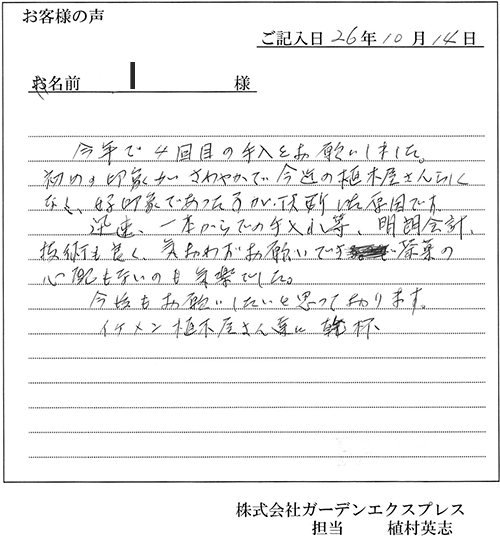 お客様の声
ご記入日 26年10月14日
お名前 様
今年で4回目の手入をお願いしました。
初めの印象がさわやかで今迄の植木屋さんらしく
なく、好印象であった事が、決断した原因です。
迅速、一本からでの手入れ等、明朗会計、
技術も良く、気がねなくお願いでき 茶菓の
心配もないのも気楽でした。
今後もお願いしたいと思っております。
イケメン植木屋さん達に乾杯、
株式会社ガーデンエクスプレス
担当 植村英志